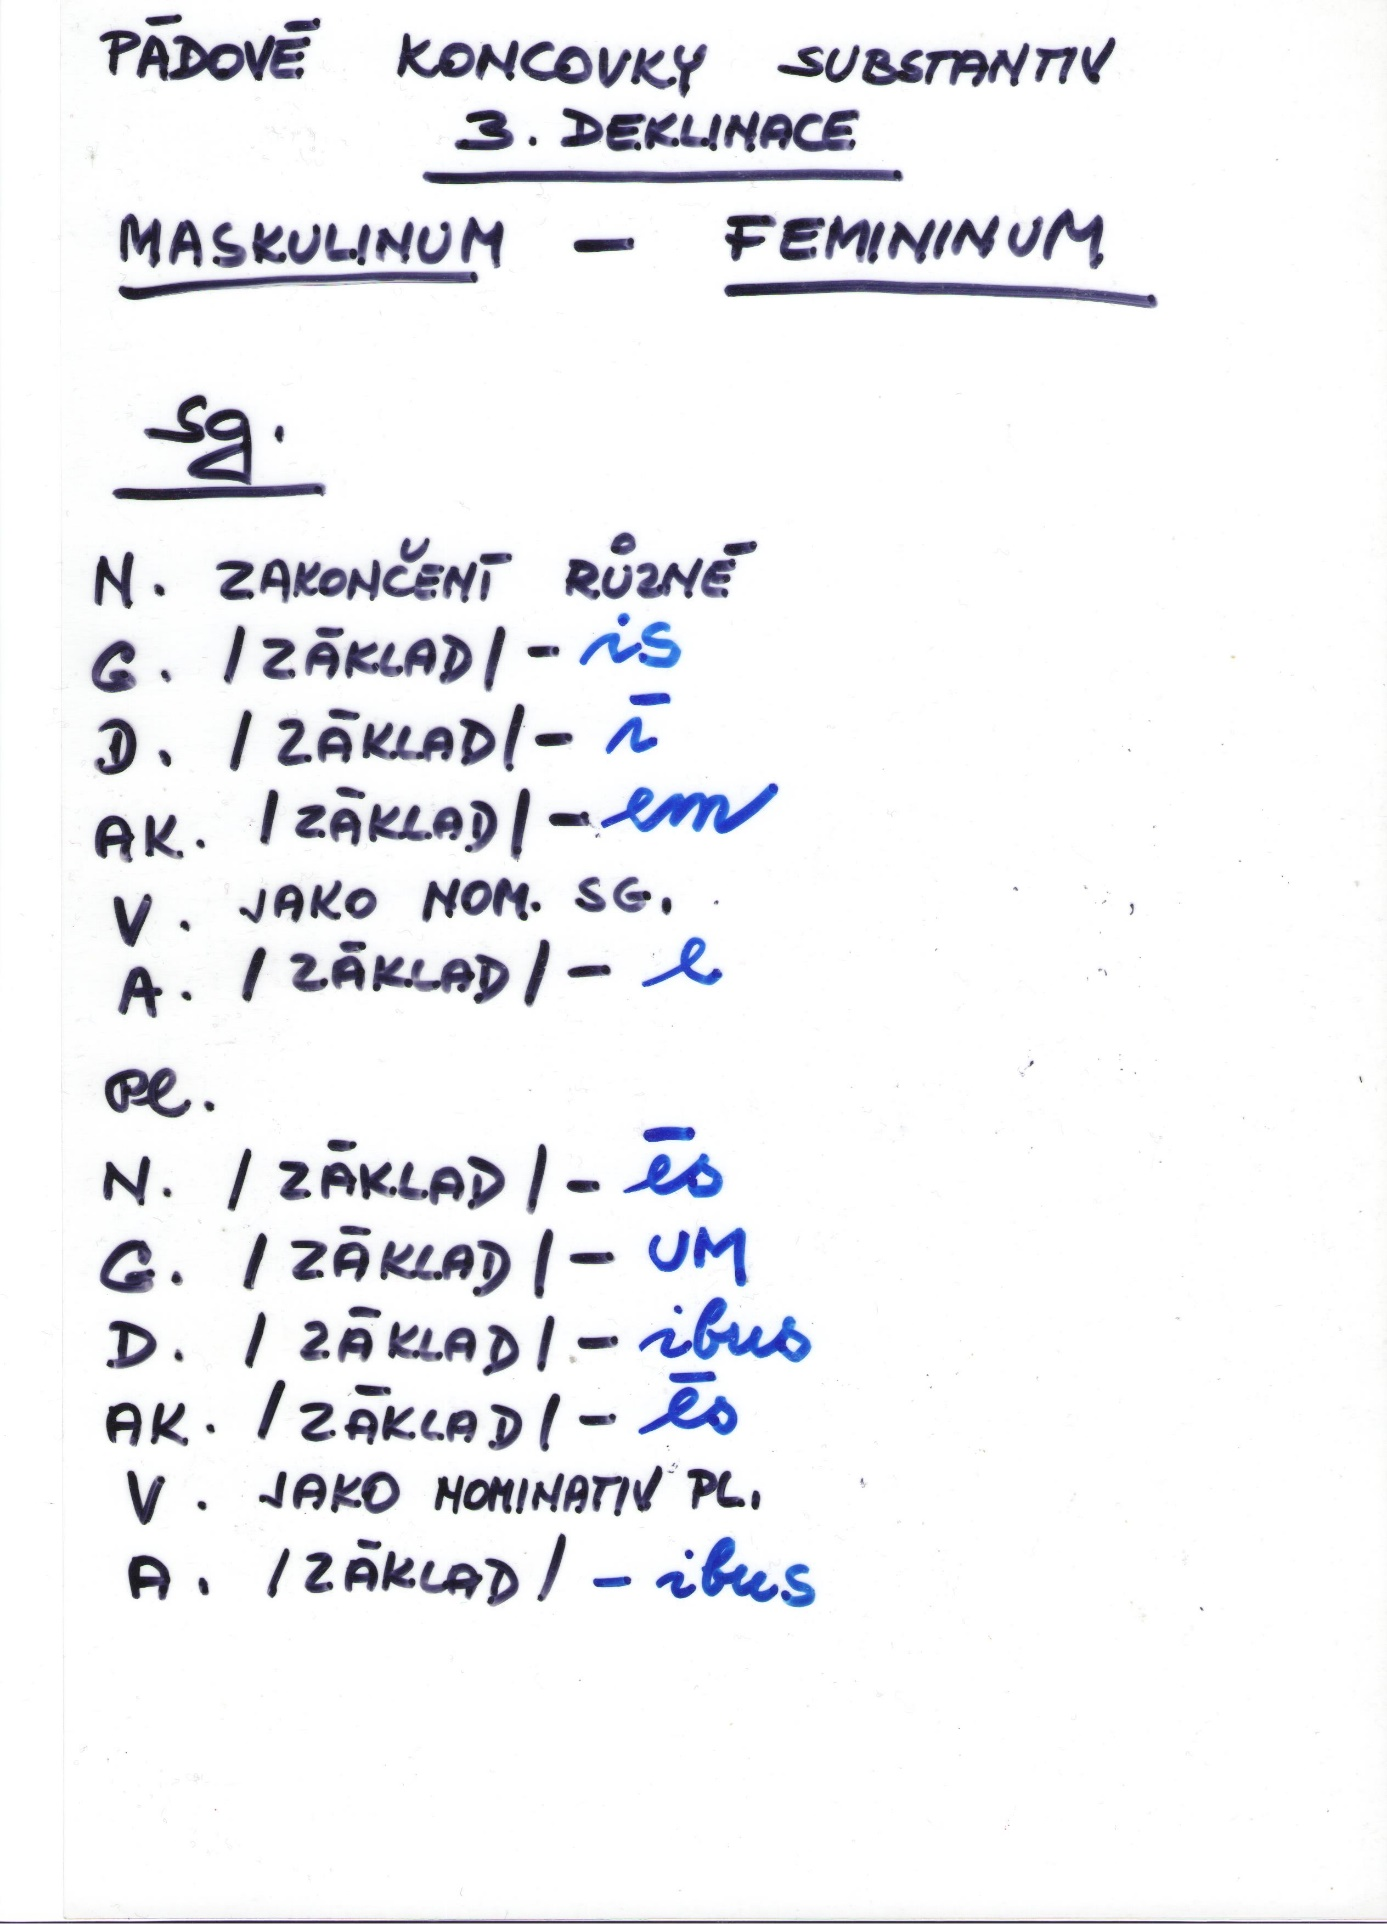 PĀDOVĒ KONCOVKY SUBSTANTIV
3. DEKLINACE
MASKULINUM – FEMININUM
Sg.
N. ZAKONČENĪ RŮZNĒ
G. /ZĀKLAD/ - is
D. /ZĀKLAD/ - ī
AK. /ZĀKLAD/ - em
V. JAKO NOM. SG.
A. /ZĀKLAD/ - e
Pl.
N. /ZĀKLAD/ - ēs
G. /ZĀKLAD/ - UM
D. /ZĀKLAD/ - ibus
AK. /ZĀKLAD/ - ēs
V. JAKO NOMINATIV PL.
A. /ZĀKLAD/ - ibus